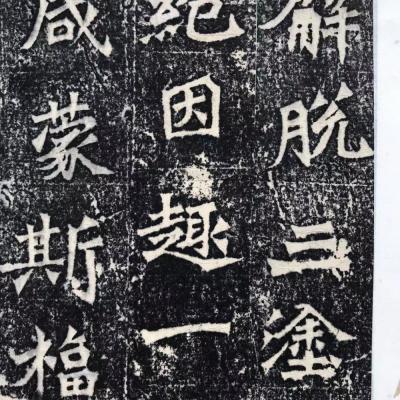 解脱三塗
絕因趣一
咸蒙斯福